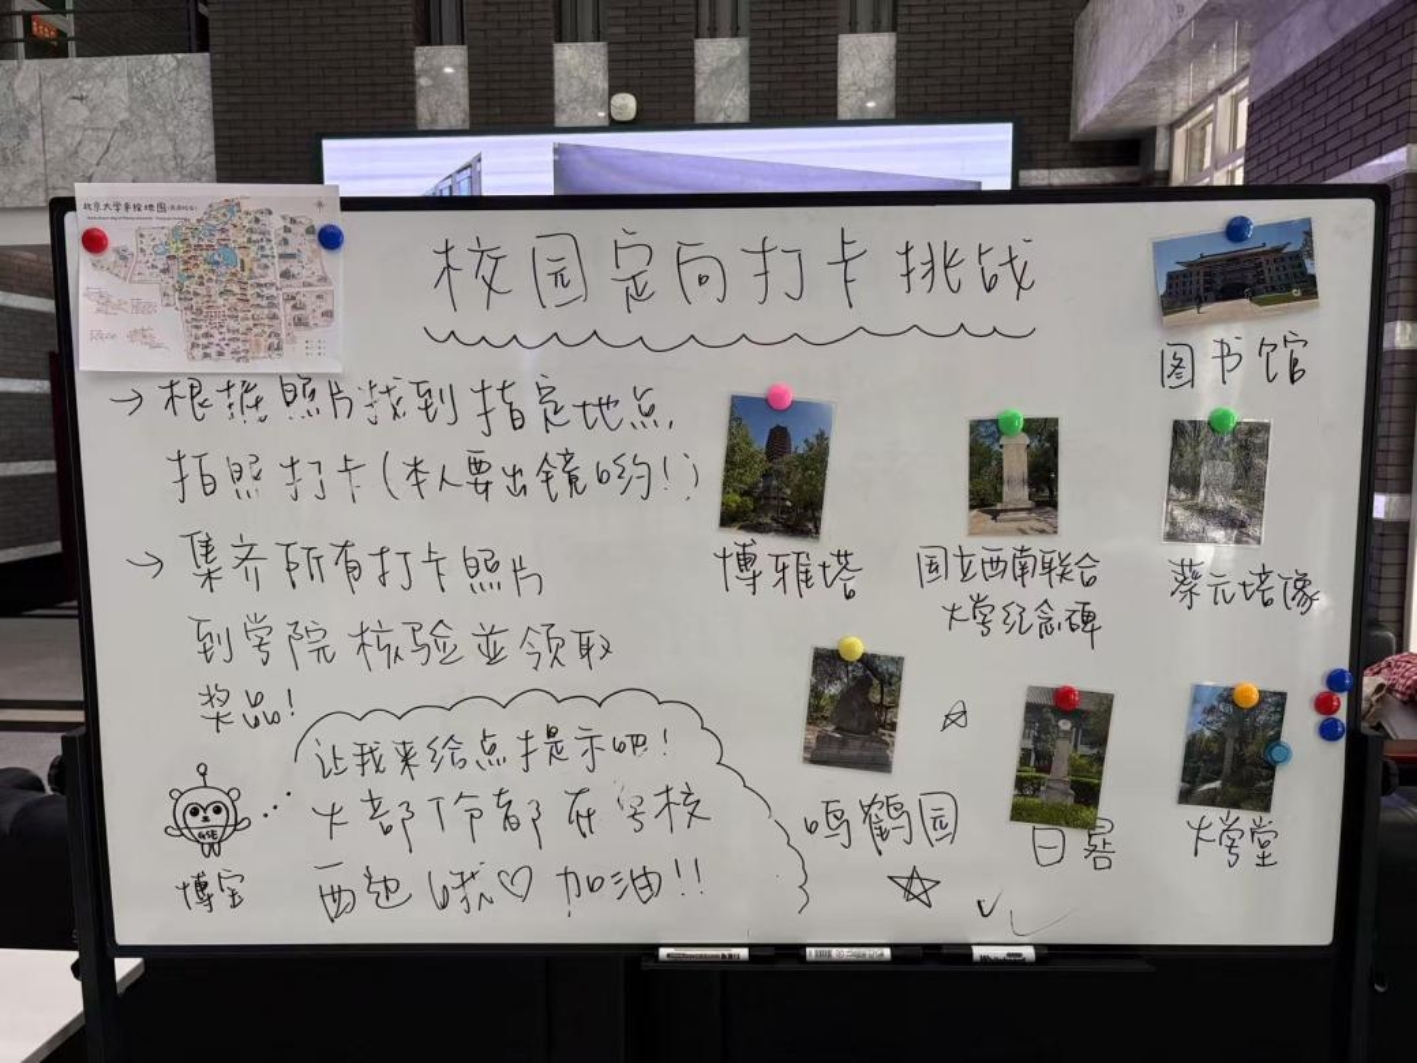 北京大学手绘地图
校园定向打卡挑战
→根据照片找到指定地点
拍照打卡(本人要出镜哟!)
→集齐所有打卡照片
到学院核验並领取
奖品!
让我来给点提示吧!
大部份都在学校
西边哦♡加油!!
GSE
博宝
图书馆
博雅塔
国立西南联合
大学纪念碑
蔡元培像
鸣鹤园
日晷
大学堂